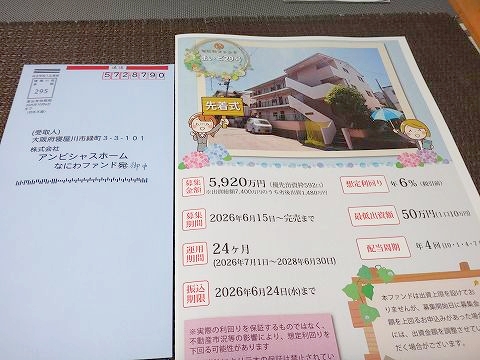 速達
5728790
295
(受取人)
大阪府寝屋川市緑町3-3-101
株式会社
アンビシャスホーム
なにわファンド宛
先着式
募集金額
5,920万円
募集期間
2026年6月15日~完売まで
運用期間
24ヶ月
(2026年7月1日~2028年6月30日)
振込期限
2026年6月24日(水)まで
想定利回り
年6%(税引前)
最低出資額
50万円
配当周期
年4回
※実際の利回りを保証するものではなく、
不動産市況等の影響により、想定利回りを
下回る可能性があります
本ファンドは出資上限を設けてお
りませんが、募集開始日に募集金
額を上回るお申込みがあった場合
には、出資金額を調整させてい
ただく場合がございます。